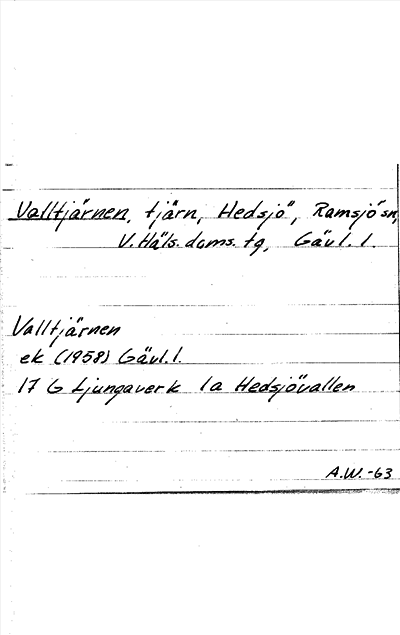 Valltjärnen, tjärn, Hedsjö", Ramsjö sn,
V. Häls. doms. tg, Gävl. l.
Valltjärnen
ek (1958) Gävl. l.
17 G Ljungaverk 1a Hedsjövallen
A.W.-63